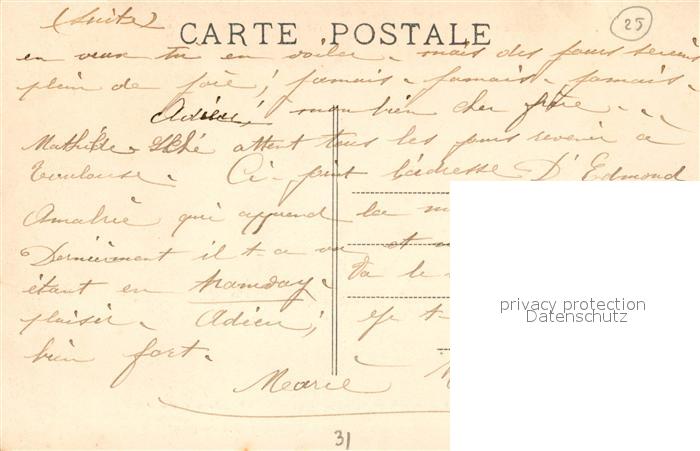 (Suite)
25
CARTE POSTALE
en veux tu en voilà. mais des jours sereins
plein de joie; jamais. jamais. jamais.
Adieu, mon bien cher frère.
Mathilde attent tous les jours revenir à
Toulouse. Ci-joint l'adresse D'Edmond
Amalric qui apprend la
Dernièrement il t-a vu et
étant en tramway. Va le
plaisir. Adieu; et t-
bien fort.
Marie
31
privacy protection
Datenschutz